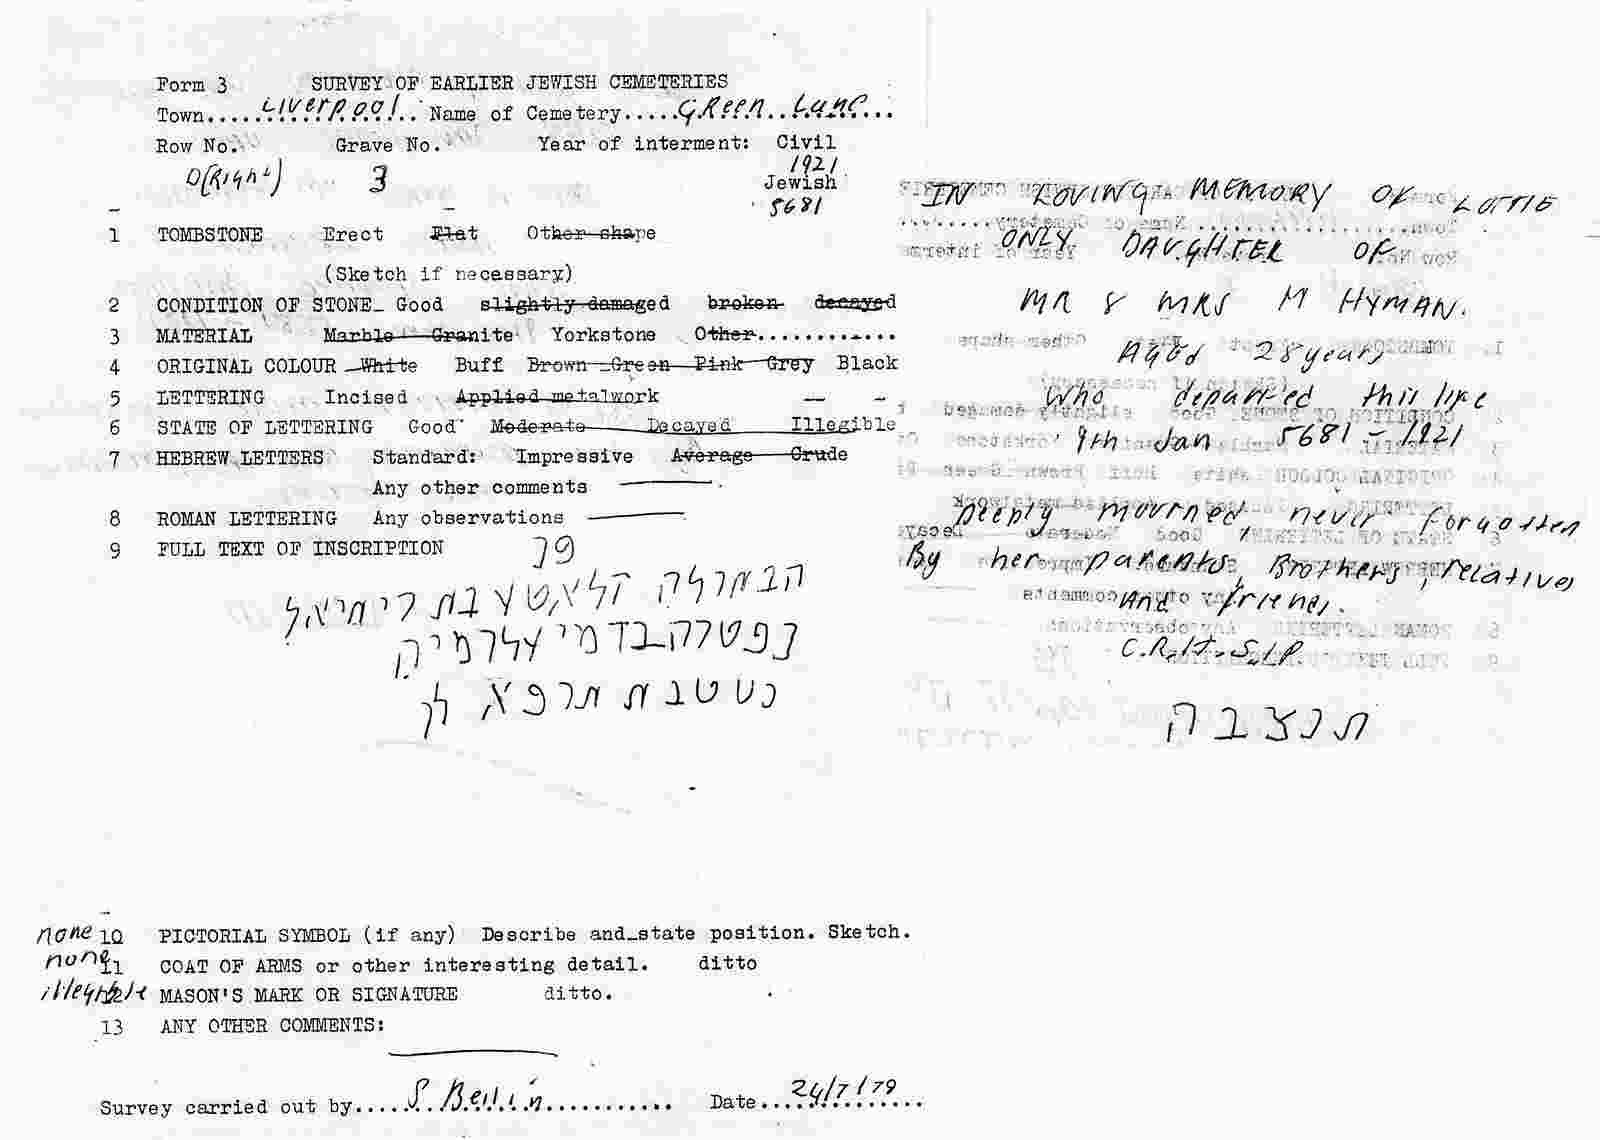 Form 3 SURVEY OF EARLIER JEWISH CEMETERIES
Town..Liverpool.. Name of Cemetery.....Green Lane...
Row No. Grave No. Year of interment: Civil
1921
D(Right) 3 Jewish
5681
1 TOMBSTONE Erect Flat Other shape
(Sketch if necessary)
2 CONDITION OF STONE Good slightly damaged broken decayed
3 MATERIAL Marble Granite Yorkstone Other.............
4 ORIGINAL COLOUR White Buff Brown Green Pink Grey Black
5 LETTERING Incised Applied metalwork
6 STATE OF LETTERING Good Moderate Decayed Illegible
7 HEBREW LETTERS Standard: Impressive Average Crude
Any other comments
8 ROMAN LETTERING Any observations
9 FULL TEXT OF INSCRIPTION
פנ
הבתולה
נפטרה
כט טבת תרפא
IN LOVING MEMORY OF LOTTIE
ONLY DAUGHTER OF
MR & MRS M HYMAN.
AGED 28 years
Who departed this life
9th Jan 5681 - 1921
Deeply mourned, never forgotten
By her parents, Brothers, relatives
And friends.
תנצבה
none 10 PICTORIAL SYMBOL (if any) Describe and state position. Sketch.
none 11 COAT OF ARMS or other interesting detail. ditto
illegible 12 MASON'S MARK OR SIGNATURE ditto.
13 ANY OTHER COMMENTS:
Survey carried out by.....S Beilin............ Date...24/7/79...